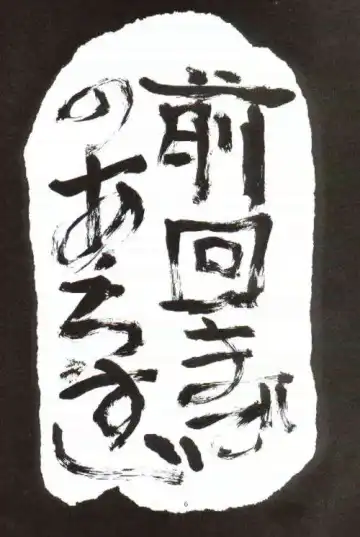 前回まで
のあらすじ
6